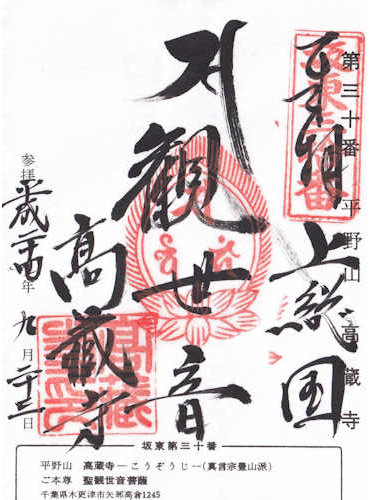 第三十番 平野山 高蔵寺
坂東三十番
上総国
観世音
高蔵寺
参拝 平成二十四年 九月二十三日
坂東第三十番
平野山 高蔵寺―こうぞうじ―(真言宗豊山派)
ご本尊 聖観世音菩薩
千葉県木更津市矢那高倉1245